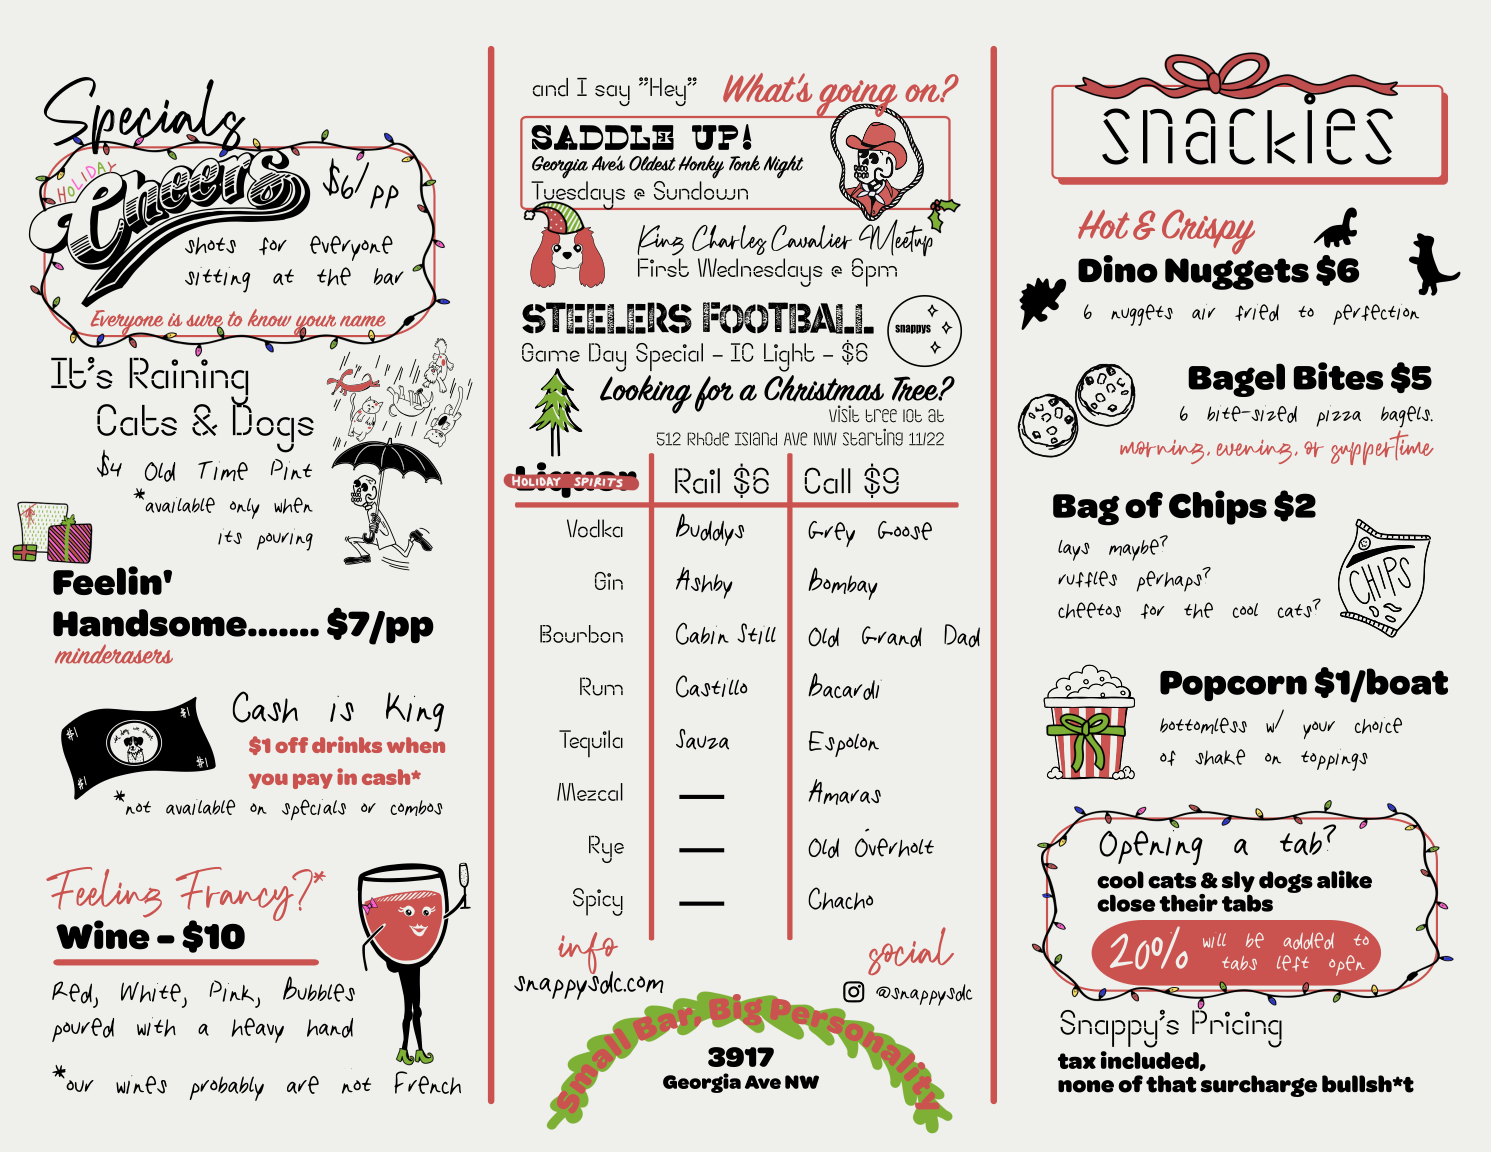 Specials
HOLIDAY
Cheers
$6/pp
shots for everyone
sitting at the bar
Everyone is sure to know your name
It's Raining
Cats & Dogs
$4 Old Time Pint
*available only when
its pouring
Feelin'
Handsome....... $7/pp
minderasers
$1
$1
$1
$1
Cash is King
$1 off drinks when
you pay in cash*
*not available on specials or combos
Feeling Francy?*
Wine - $10
Red, White, Pink, Bubbles
poured with a heavy hand
*our wines probably are not French
and I say "Hey" What's going on?
SADDLE UP!
Georgia Ave's Oldest Honky Tonk Night
Tuesdays @ Sundown
King Charles Cavalier Meetup
First Wednesdays @ 6pm
STEELERS FOOTBALL
Game Day Special - IC Light - $6
snappys
Looking for a Christmas Tree?
visit tree lot at
512 Rhode Island Ave NW starting 11/22
Liquor
HOLIDAY SPIRITS
Rail $6 Call $9
Vodka Buddys Grey Goose
Gin Ashby Bombay
Bourbon Cabin Still Old Grand Dad
Rum Castillo Bacardi
Tequila Sauza Espolon
Mezcal — Amaras
Rye — Old Overholt
Spicy — Chacho
info
snappysdc.com
social
@snappysdc
Small Bar, Big Personality
3917
Georgia Ave NW
snackies
Hot & Crispy
Dino Nuggets $6
6 nuggets air fried to perfection
Bagel Bites $5
6 bite-sized pizza bagels.
morning, evening, or suppertime
Bag of Chips $2
lays maybe?
ruffles perhaps?
cheetos for the cool cats?
CHIPS
Popcorn $1/boat
bottomless w/ your choice
of shake on toppings
Opening a tab?
cool cats & sly dogs alike
close their tabs
20% will be added to
tabs left open
Snappy's Pricing
tax included,
none of that surcharge bullsh*t